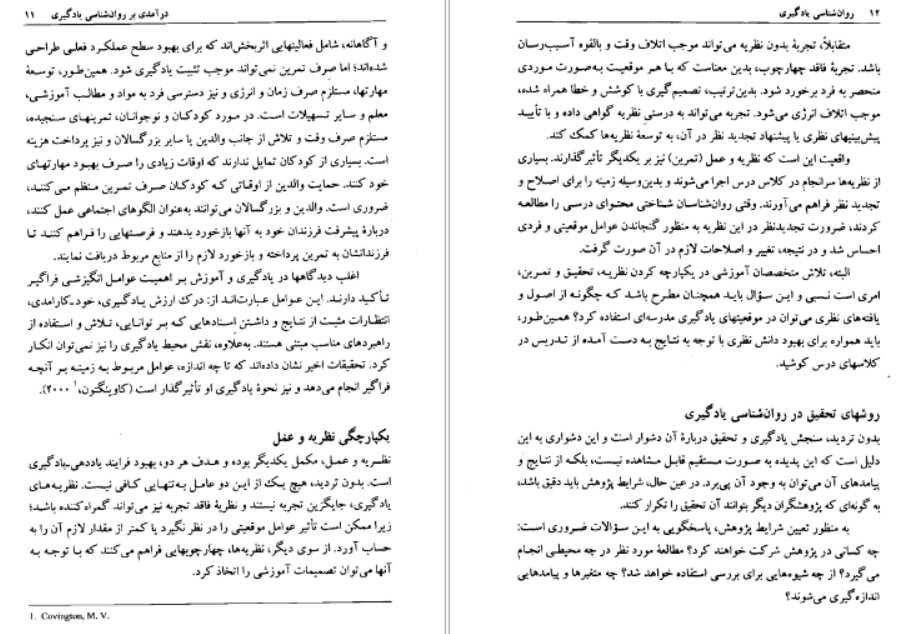 درآمدی بر روان‌شناسی یادگیری ۱۱
و آگاهانه، شامل فعالیتهایی اثربخش‌اند که برای بهبود سطح عملکرد فعلی طراحی
شده‌اند؛ اما صرف تمرین نمی‌تواند موجب تثبیت یادگیری شود. همین‌طور، توسعهٔ
مهارتها، مستلزم صرف زمان و انرژی و نیز دسترسی فرد به مواد و مطالب آموزشی،
معلم و سایر تسهیلات است. در مورد کودکان و نوجوانان، تمرینهای سنجیده،
مستلزم صرف وقت و تلاش از جانب والدین یا سایر بزرگسالان و نیز پرداخت هزینه
است. بسیاری از کودکان تمایل ندارند که اوقات زیادی را صرف بهبود مهارتهای
خود کنند. حمایت والدین از اوقاتی که کودکان صرف تمرین منظم می‌کنند،
ضروری است. والدین و بزرگسالان می‌توانند به‌عنوان الگوهای اجتماعی عمل کنند،
دربارهٔ پیشرفت فرزندان خود به آنها بازخورد بدهند و فرصتهایی را فراهم کنند تا
فرزندانشان به تمرین پرداخته و بازخورد لازم را از منابع مربوط دریافت نمایند.
اغلب دیدگاهها در یادگیری و آموزش بر اهمیت عوامل انگیزشی فراگیر
تأکید دارند. این عوامل عبارت‌اند از: درک ارزش یادگیری، خود-کارامدی،
انتظارات مثبت از نتایج و داشتن اسنادهایی که بر توانایی، تلاش و استفاده از
راهبردهای مناسب مبتنی هستند. به‌علاوه، نقش محیط یادگیری را نیز نمی‌توان انکار
کرد. تحقیقات اخیر نشان داده‌اند که تا چه اندازه، عوامل مربوط به زمینه بر آنچه
فراگیر انجام می‌دهد و نیز نحوهٔ یادگیری او تأثیرگذار است (کاوینگتون،¹ ۲۰۰۰).
یکپارچگی نظریه و عمل
نظریه و عمل، مکمل یکدیگر بوده و هدف هر دو، بهبود فرایند یاددهی-یادگیری
است. بدون تردید، هیچ یک از این دو عامل به‌تنهایی کافی نیست. نظریه‌های
یادگیری، جایگزین تجربه نیستند و نظریهٔ فاقد تجربه نیز می‌تواند گمراه‌کننده باشد؛
زیرا ممکن است تأثیر عوامل موقعیتی را در نظر نگیرد یا کمتر از مقدار لازم آن را به
حساب آورد. از سوی دیگر، نظریه‌ها، چهارچوبهایی فراهم می‌کنند که با توجه به
آنها می‌توان تصمیمات آموزشی را اتخاذ کرد.
1. Covington, M. V.
۱۲ روان‌شناسی یادگیری
متقابلاً، تجربهٔ بدون نظریه می‌تواند موجب اتلاف وقت و بالقوه آسیب‌رسان
باشد. تجربهٔ فاقد چهارچوب، بدین معناست که با هر موقعیت به‌صورت موردی
منحصر به فرد برخورد شود. بدین‌ترتیب، تصمیم‌گیری با کوشش و خطا همراه شده،
موجب اتلاف انرژی می‌شود. تجربه می‌تواند به درستی نظریه گواهی داده و با تأیید
پیش‌بینیهای نظری یا پیشنهاد تجدید نظر در آن، به توسعهٔ نظریه‌ها کمک کند.
واقعیت این است که نظریه و عمل (تمرین) نیز بر یکدیگر تأثیرگذارند. بسیاری
از نظریه‌ها سرانجام در کلاس درس اجرا می‌شوند و بدین‌وسیله زمینه را برای اصلاح و
تجدید نظر فراهم می‌آورند. وقتی روان‌شناسان شناختی محتوای درسی را مطالعه
کردند، ضرورت تجدیدنظر در این نظریه به منظور گنجاندن عوامل موقعیتی و فردی
احساس شد و در نتیجه، تغییر و اصلاحات لازم در آن صورت گرفت.
البته، تلاش متخصصان آموزشی در یکپارچه کردن نظریه، تحقیق و تمرین،
امری است نسبی و این سؤال باید همچنان مطرح باشد که چگونه از اصول و
یافته‌های نظری می‌توان در موقعیتهای یادگیری مدرسه‌ای استفاده کرد؟ همین‌طور،
باید همواره برای بهبود دانش نظری با توجه به نتایج به دست آمده از تدریس در
کلاسهای درس کوشید.
روشهای تحقیق در روان‌شناسی یادگیری
بدون تردید، سنجش یادگیری و تحقیق دربارهٔ آن دشوار است و این دشواری به این
دلیل است که این پدیده به صورت مستقیم قابل مشاهده نیست، بلکه از نتایج و
پیامدهای آن می‌توان به وجود آن پی‌برد. در عین حال، شرایط پژوهش باید دقیق باشد،
به گونه‌ای که پژوهشگران دیگر بتوانند آن تحقیق را تکرار کنند.
به منظور تعیین شرایط پژوهش، پاسخگویی به این سؤالات ضروری است:
چه کسانی در پژوهش شرکت خواهند کرد؟ مطالعهٔ مورد نظر در چه محیطی انجام
می‌گیرد؟ از چه شیوه‌هایی برای بررسی استفاده خواهد شد؟ چه متغیرها و پیامدهایی
اندازه‌گیری می‌شوند؟